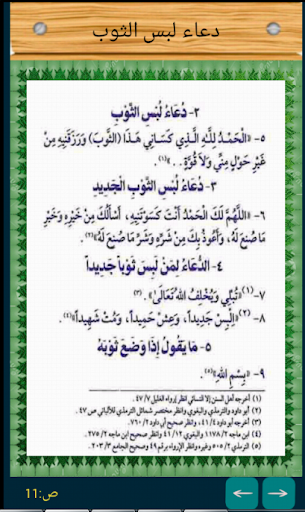 دعاء لبس الثوب
٢- دُعَاءُ لُبْسِ الثَّوْبِ
٥- «الْحَمْدُ لِلَّهِ الَّذِي كَسَانِي هَذَا (الثَّوْبَ) وَرَزَقَنِيهِ مِنْ
غَيْرِ حَوْلٍ مِنِّي وَلَا قُوَّةٍ..»(١).
٣- دُعَاءُ لُبْسِ الثَّوْبِ الْجَدِيدِ
٦- «اللَّهُمَّ لَكَ الْحَمْدُ أَنْتَ كَسَوْتَنِيهِ، أَسْأَلُكَ مِنْ خَيْرِهِ وَخَيْرِ
مَا صُنِعَ لَهُ، وَأَعُوذُ بِكَ مِنْ شَرِّهِ وَشَرِّ مَا صُنِعَ لَهُ»(٢).
٤- الدُّعَاءُ لِمَنْ لَبِسَ ثَوْباً جَدِيداً
٧-(١) «تُبْلِي وَيُخْلِفُ اللهُ تَعَالَى»(٣).
٨-(٢) «اِلْبَسْ جَدِيداً، وَعِشْ حَمِيداً، وَمُتْ شَهِيداً»(٤).
٥- مَا يَقُولُ إِذَا وَضَعَ ثَوْبَهُ
٩- «بِسْمِ اللهِ»(٥).
(١) أخرجه أهل السنن إلا النسائي انظر إرواء الغليل ٤٧/٧.
(٢) أبو داود والترمذي والبغوي وانظر مختصر شمائل الترمذي للألباني ص ٤٧.
(٣) أخرجه أبو داود ٤١/٤، وانظر صحيح أبي داود ٧٦٠/٢.
(٤) ابن ماجه ١١٧٨/٢ والبغوي ٤١/١٢ وانظر صحيح ابن ماجه ٢٧٥/٢.
(٥) الترمذي ٥٠٥/٢ وغيره وانظر الإرواء برقم ٤٩ وصحيح الجامع ٢٠٣/٣.
ص:11